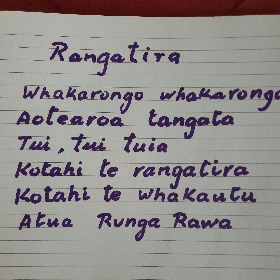 Rangatira
Whakarongo whakarongo
Aotearoa tangata
Tui, tui tuia
Kotahi te rangatira
Kotahi te whakautu
Atua Runga Rawa